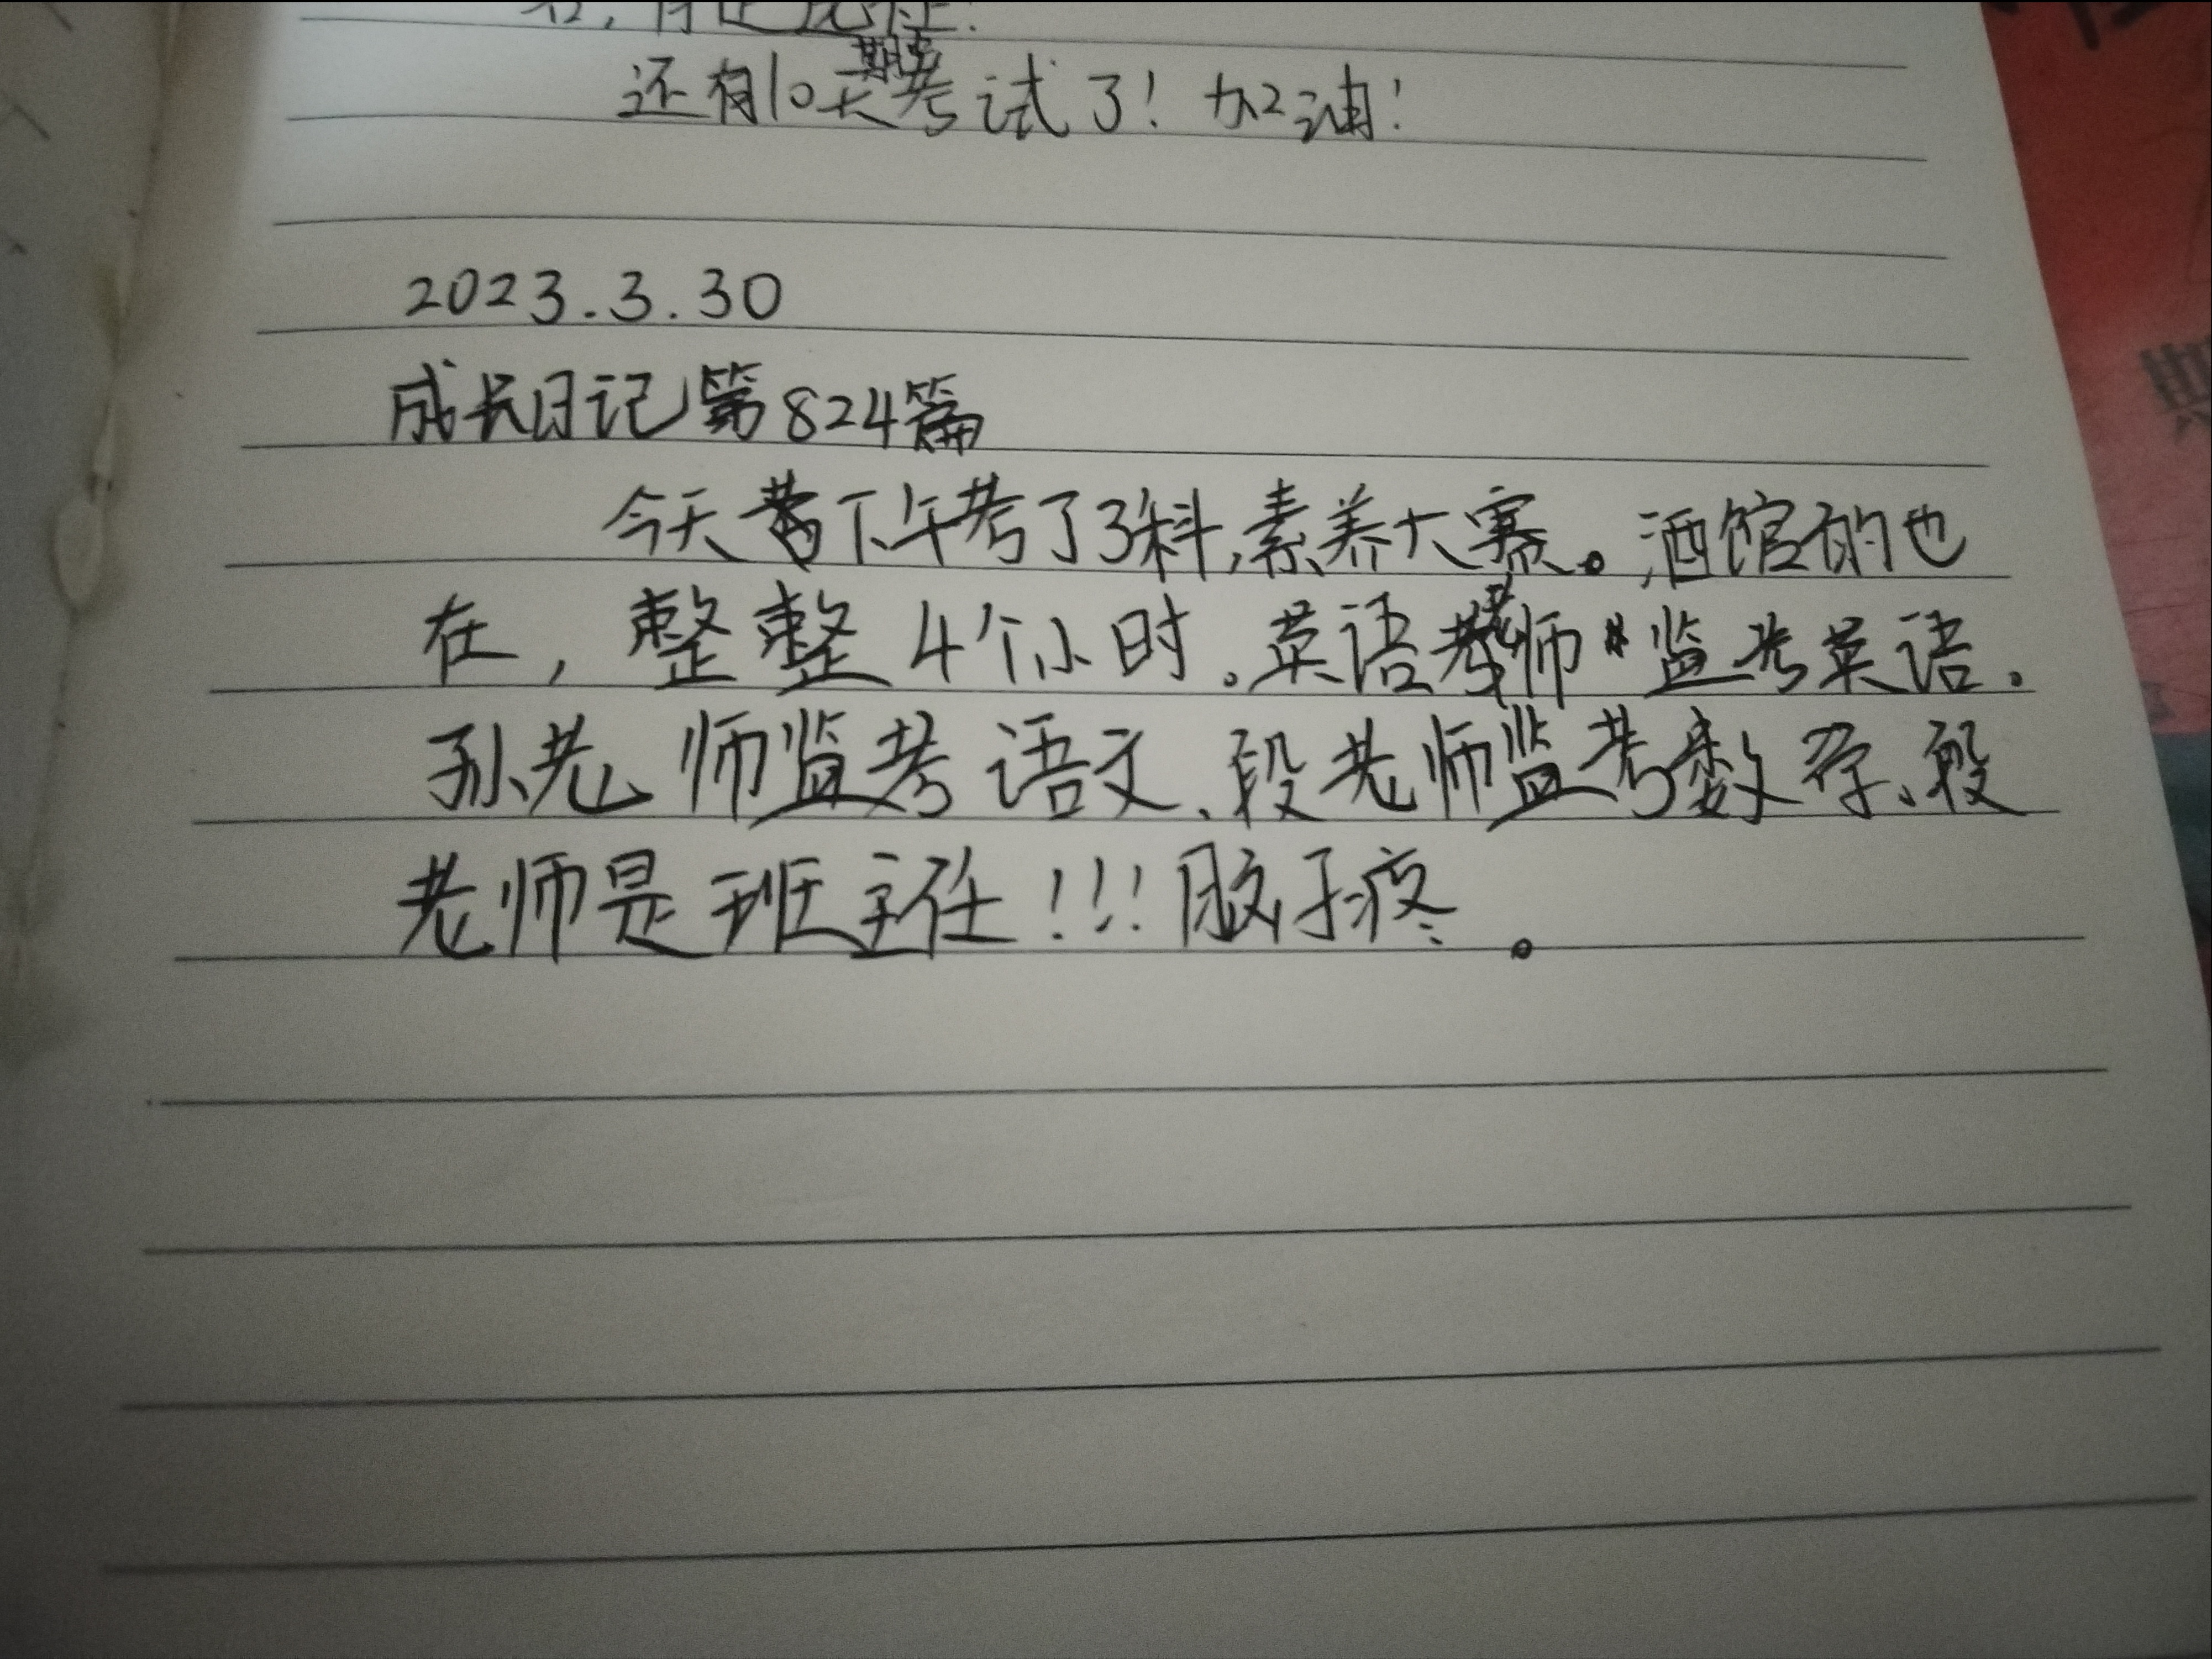 还有10天期中考试了！加油！
2023.3.30
成长日记第824篇
今天下午考了3科,素养大赛。酒馆的也
在，整整4个小时。英语老师监考英语.
孙老师监考语文、段老师监考数学、段
老师是班主任！！！脑子疼。